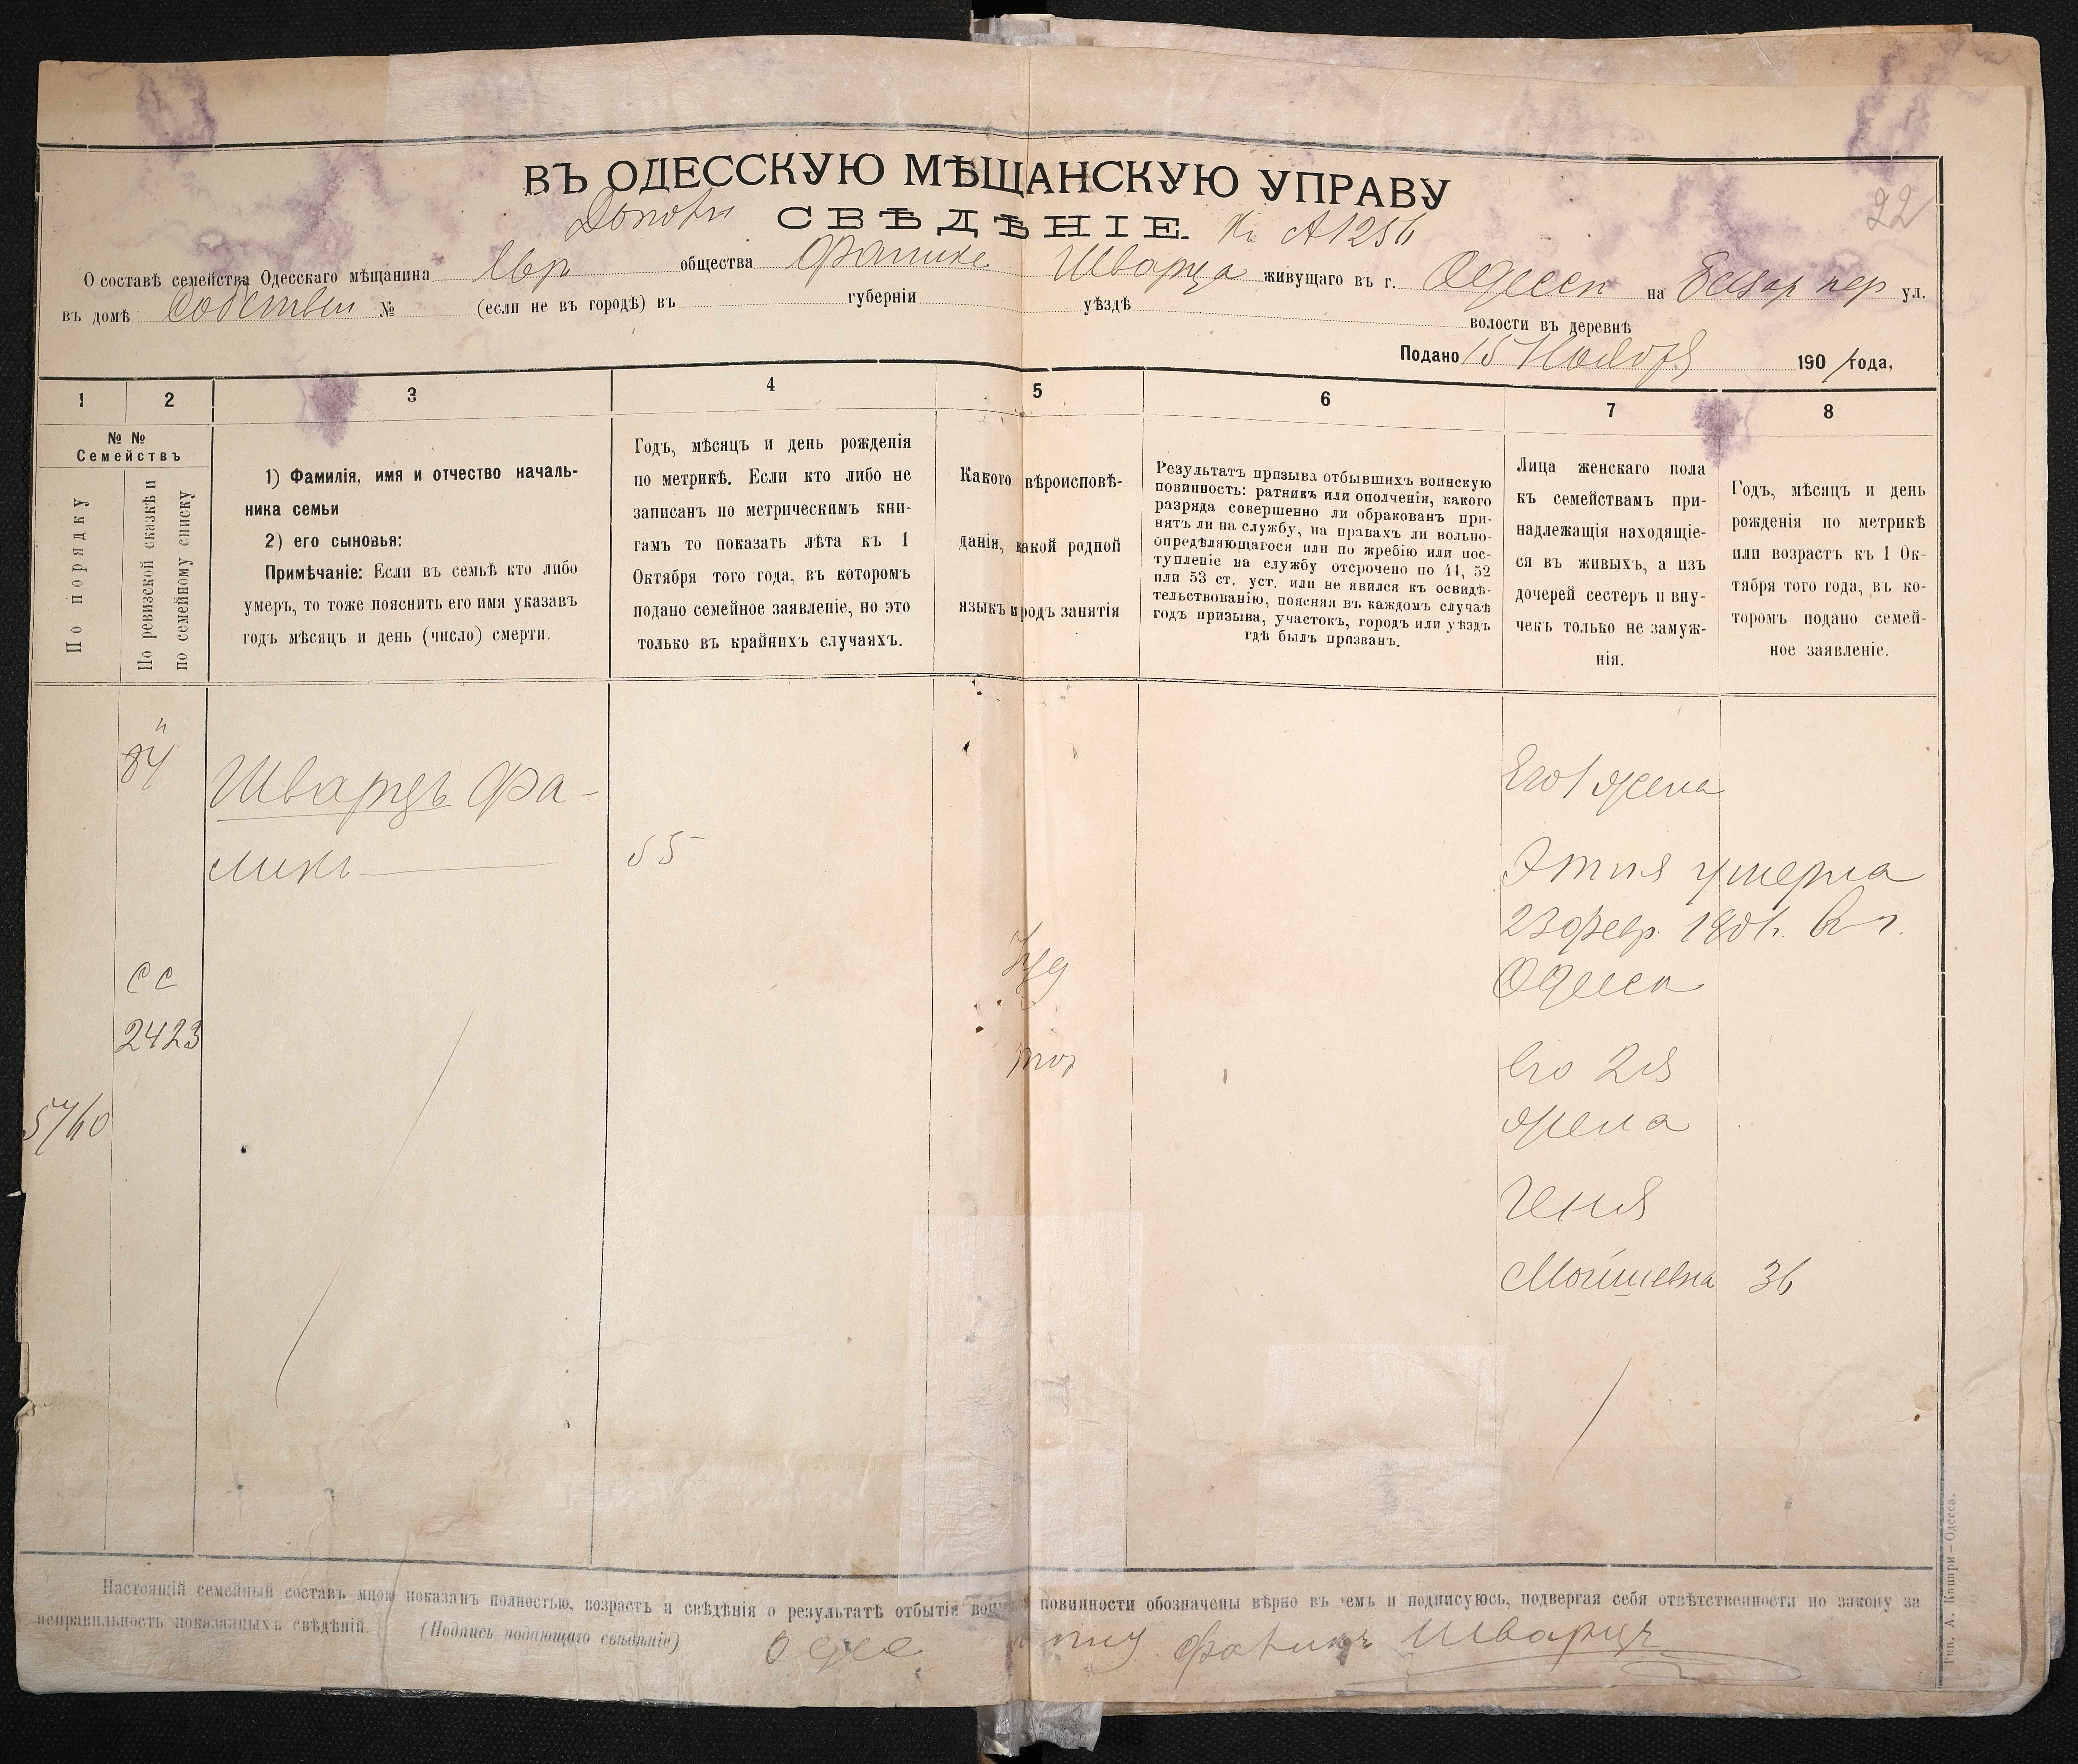 22
ВЪ ОДЕССКУЮ МѢЩАНСКУЮ УПРАВУ
СВѢДѢНІЕ. А1256
О составѣ семейства Одесскаго мѣщанина Евр общества Фалика Шварца живущаго въ г. Одессѣ на Базар пер ул.
въ домѣ Собствен № (если не въ городѣ) въ губерніи уѣздѣ волости въ деревнѣ
Подано 15 Ноября 1901 года,
1 2 3 4 5 6 7 8
№ №
Семействъ
По порядку
По ревизской сказкѣ и
по семейному списку
1) Фамилія, имя и отчество началь-
ника семьи
2) его сыновья:
Примѣчаніе: Если въ семьѣ кто либо
умеръ, то тоже пояснить его имя указавъ
годъ мѣсяцъ и день (число) смерти.
Годъ, мѣсяцъ и день рожденія
по метрикѣ. Если кто либо не
записанъ по метрическимъ кни-
гамъ то показать лѣта къ 1
Октября того года, въ которомъ
подано семейное заявленіе, но это
только въ крайнихъ случаяхъ.
Какого вѣроисповѣ-
данія, какой родной
языкъ и родъ занятія
Результатъ призыва отбывшихъ воинскую
повинность: ратникъ или ополченія, какого
разряда совершенно ли обракованъ при-
нятъ ли на службу, на правахъ ли вольно-
опредѣляющагося или по жребію или пос-
тупленіе на службу отсрочено по 44, 52
или 53 ст. уст. или не явился къ освидѣ-
тельствованію, поясняя въ каждомъ случаѣ
годъ призыва, участокъ, городъ или уѣздъ
гдѣ былъ призванъ.
Лица женскаго пола
къ семействамъ при-
надлежащія находящіе-
ся въ живыхъ, а изъ
дочерей сестеръ и вну-
чекъ только не замуж-
нія.
Годъ, мѣсяцъ и день
рожденія по метрикѣ
или возрастъ къ 1 Ок-
тября того года, въ ко-
торомъ подано семей-
ное заявленіе.
84 Шварцъ Фа- Его 1 жена
ликъ 55 Этля умерла
23 февр. 1901 г. въ г.
сс Іуд Одессѣ
2423 тор его 2я
5760 жена
Геня
Мойшевна 36
Настоящій семейный составъ мною показанъ полностью, возрастъ и свѣдѣнія о результатѣ отбытія воин повинности обозначены вѣрно въ чемъ и подписуюсь, подвергая себя отвѣтственности по закону за
неправильность показанныхъ свѣдѣній.
(Подпись подающаго свѣдѣніе) Фаликъ Шварцъ
Тип. А. Капари – Одесса.